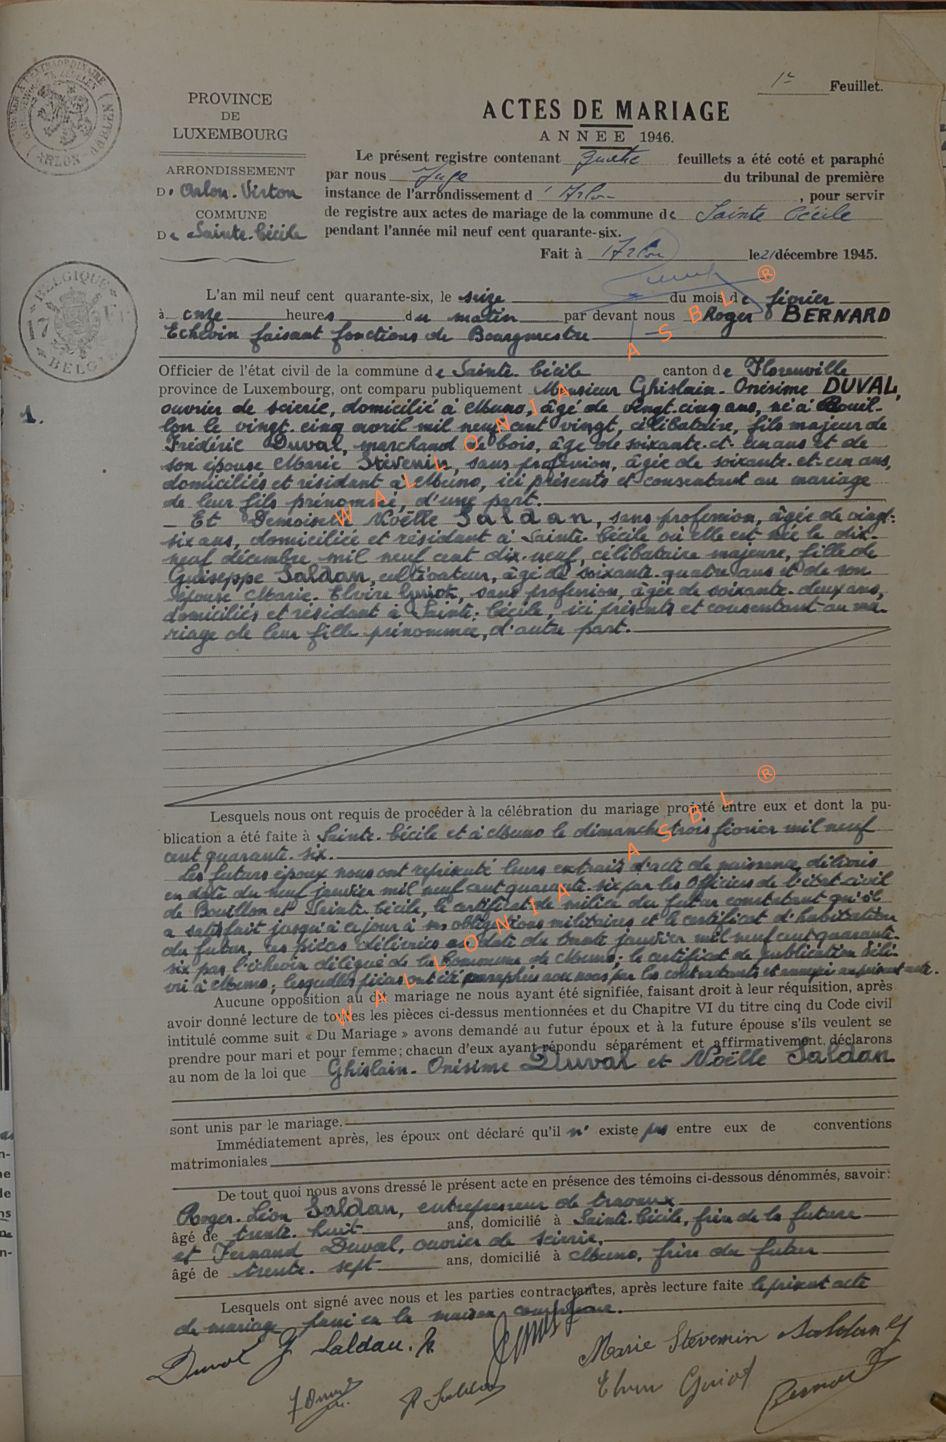 1r Feuillet.
PROVINCE
DE
LUXEMBOURG
ARRONDISSEMENT
De Arlon-Virton
COMMUNE
De Sainte-Cécile
ACTES DE MARIAGE
ANNEE 1946.
Le présent registre contenant quatre feuillets a été coté et paraphé
par nous Juge du tribunal de première
instance de l'arrondissement d'Arlon, pour servir
de registre aux actes de mariage de la commune de Sainte Cécile
pendant l'année mil neuf cent quarante-six.
Fait à Arlon le 21 décembre 1945.
BELGIQUE
BELGIË
1.
L'an mil neuf cent quarante-six, le seize du mois de février
à onze heures du matin par devant nous Roger BERNARD
Echevin faisant fonctions de Bourgmestre
Officier de l'état civil de la commune de Sainte-Cécile canton de Florenville
province de Luxembourg, ont comparu publiquement Monsieur Ghislain-Onésime DUVAL,
ouvrier de scierie, domicilié à Muno, âgé de vingt-cinq ans, né à Bouil-
lon le vingt-cinq avril mil neuf cent vingt, célibataire, fils majeur de
Frédéric Duval, marchand de bois, âgé de soixante-et-un ans et de
son épouse Marie Stévenin, sans profession, âgée de soixante-et-un ans,
domiciliés et résidant à Muno, ici présents et consentant au mariage
de leur fils prénommé, d'une part.
Et Demoiselle Noëlle Saldan, sans profession, âgée de vingt-
six ans, domiciliée et résidant à Sainte-Cécile où elle est née le dix-
neuf décembre mil neuf cent dix-neuf, célibataire majeure, fille de
Guiseppe Saldan, cultivateur, âgé de soixante-quatre ans et de son
épouse Marie-Elvire Guiot, sans profession, âgée de soixante-deux ans,
domiciliés et résidant à Sainte-Cécile, ici présents et consentant au ma-
riage de leur fille prénommée, d'autre part.
Lesquels nous ont requis de procéder à la célébration du mariage projeté entre eux et dont la pu-
blication a été faite à Sainte-Cécile et à Muno le dimanche trois février mil neuf
cent quarante-six.
Les futurs époux nous ont représenté leurs extraits d'acte de naissance, délivrés
en date du neuf janvier mil neuf cent quarante-six par les Officiers de l'état-civil
de Bouillon et Sainte-Cécile, le certificat de milice du futur constatant qu'il
a satisfait jusqu'à ce jour à ses obligations militaires et le certificat d'habitation
du futur, ces pièces délivrées en date du trente janvier mil neuf cent quarante-
six par l'échevin délégué de la Commune de Muno; le certificat de publication déli-
vré à Muno; lesquelles pièces ont été paraphées avec nous par les contractants et annexées au présent acte.
Aucune opposition au dit mariage ne nous ayant été signifiée, faisant droit à leur réquisition, après
avoir donné lecture de toutes les pièces ci-dessus mentionnées et du Chapitre VI du titre cinq du Code civil
intitulé comme suit « Du Mariage » avons demandé au futur époux et à la future épouse s'ils veulent se
prendre pour mari et pour femme; chacun d'eux ayant répondu séparément et affirmativement, déclarons
au nom de la loi que Ghislain-Onésime Duval et Noëlle Saldan
sont unis par le mariage.
Immédiatement après, les époux ont déclaré qu'il n'existe pas entre eux de conventions
matrimoniales
De tout quoi nous avons dressé le présent acte en présence des témoins ci-dessous dénommés, savoir:
Roger-Léon Saldan, entrepreneur de travaux
âgé de trente-huit ans, domicilié à Sainte-Cécile, frère de la future
et Fernand Duval, ouvrier de scierie,
âgé de trente-sept ans, domicilié à Muno, frère du futur
Lesquels ont signé avec nous et les parties contractantes, après lecture faite le présent acte
de mariage passé en la maison communale.
Duval G Saldan. N. Marie Stévenin Saldan G
F Duval R Saldan Elvire Guiot Bernard R
WALLONIA ASBL ®
WALLONIA ASBL ®